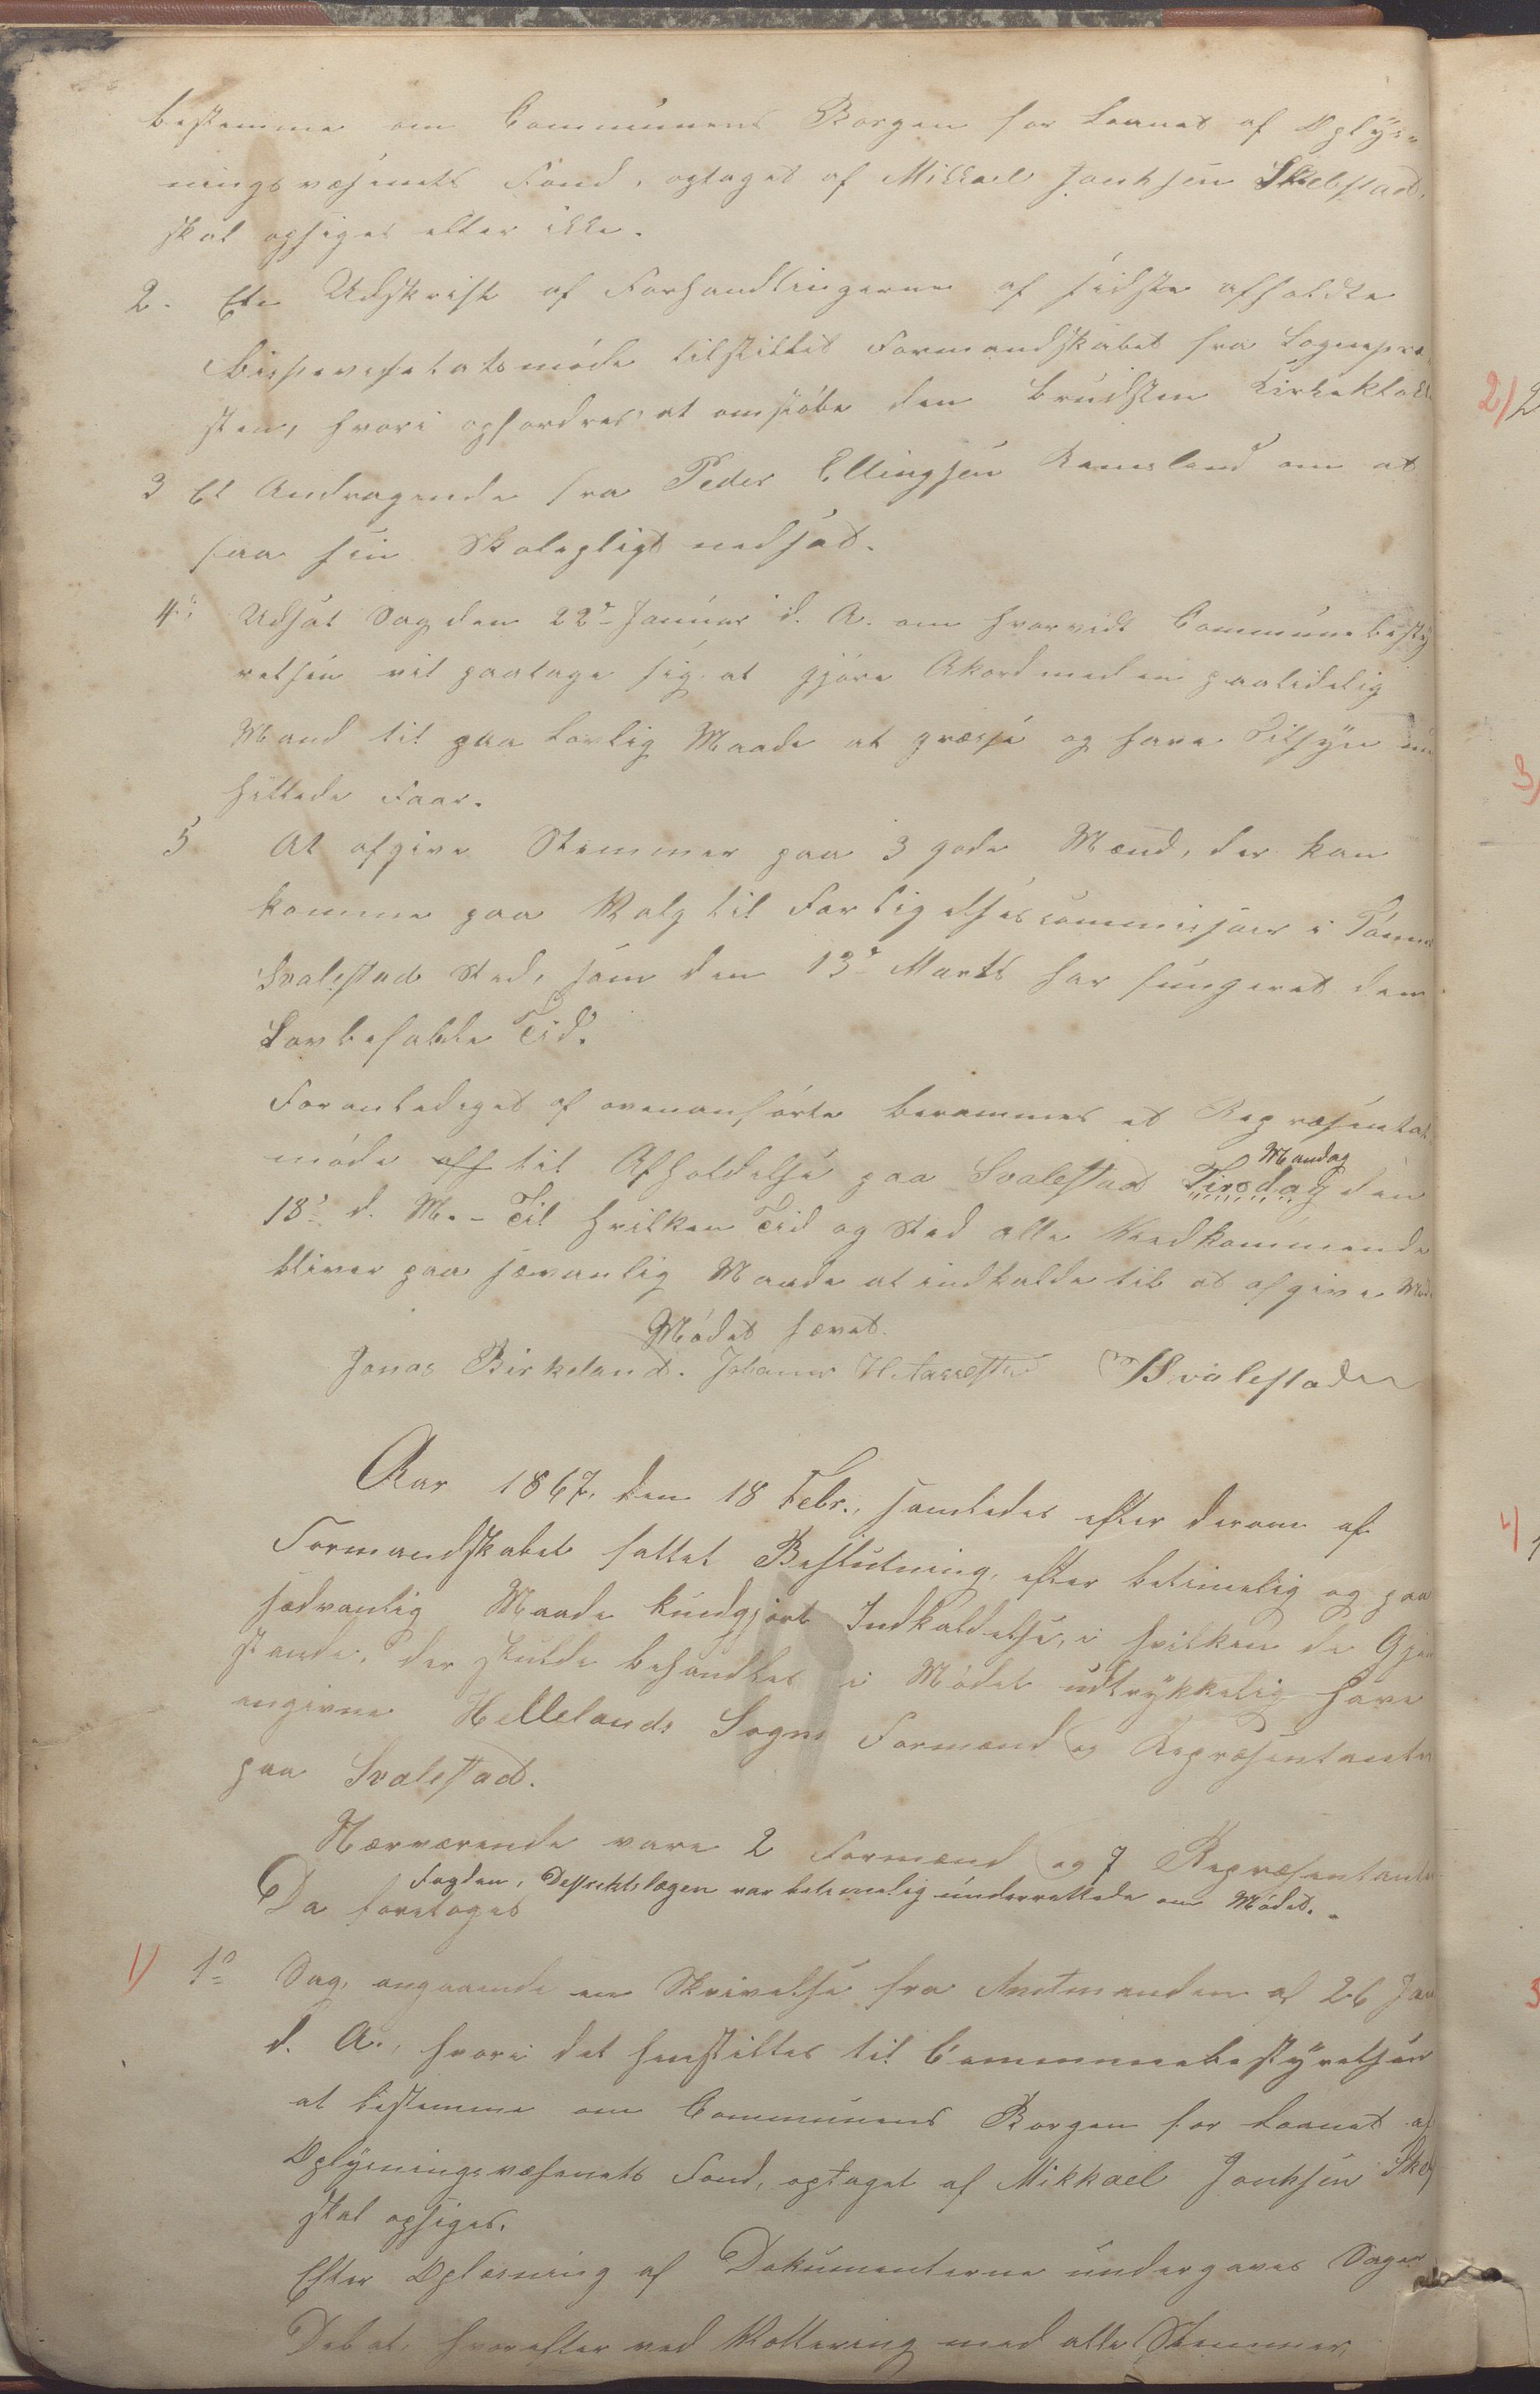 bestemme om Communens Borgen for Laanet af Oplys-
ningsvæsenets Fond, optaget af Mikkael Jonksen Skelestad,
skal opsiges eller ikke.
2. En Udskrift af Forhandlingerne af sidste afholdte
Bispevisetatsmøde tilstillet Formandskabet fra Sognepre-
sten, hvori opfordres at omstøbe den brudsten Kirkeklokke
3 Et Andragende fra Peder Ellingsen Rameland om at
faa sin Skolepligt nedsat.
4: Udsat Sag den 22de Januar d. A. om hvorvidt Communebesty
relsen vil paatage sig at gjøre Akord med en paalidelig
Mand til paa lovlig Maade at græsse og have Tilsyn
hillede Faar.
5 At afgive Stemmer paa 3 gode Mænd, der kan
komme paa Valg til Forligelsescommissær i Tønnes
Svalestad Sted, som den 13de Marts har fungeret den
Lovbefalte Tid.
Foranlediget af ovenanførte berammes et Repræsentat
møde aff til Afholdelse paa Svalestad Tirsdag den
Mandag
18de d. M. - Til hvilken Tid og Sted alle Vedkommende
bliver paa sævanlig Maade at indkalde til at afgive Møde
Mødet hævet.
Jonas Birkeland. Johannes H Aarrestad TSvalestad
Aar 1867, den 18 Febr., samledes efter derom af
Formandskabet fattet Beslutning, efter betimelig og paa
sædvanlig Maade kundgjort Indkaldelse, i hvilken de Gjen
stande, der skulde behandles i Mødet udtrykkelig have
angivne Hellelands Sogns Formænd og Repræsentanter
paa Svalestad.
Nærværende vare 2 Formænd og 7 Repræsentanter
Fogden, Destrektslægen var betimelig underrettede om Mødet.
Da foretoges
1) 1o Sag, angaaende en Skrivelse fra Amtmanden af 26 Jan
d. A., hvori det henstilles til Communebestyrelsen
at bestemme om Communens Borgen for Laanet af
Oplysningsvæsenets Fond, optaget af Mikkael Jonksen Skel
skal opsiges.
Efter Oplæsning af Dokumenterne undergaves Sagen
Debat hvorefter ved Vottering med alle Stemmer,
2) 2
3)
4)